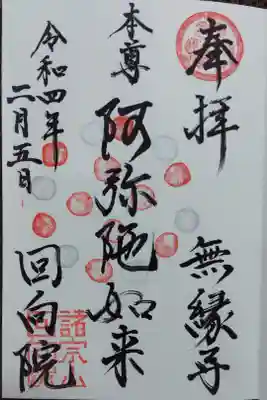 奉拝
無縁寺
本尊
阿弥陀如来
令和四年
二月五日
回向院
諸宗山